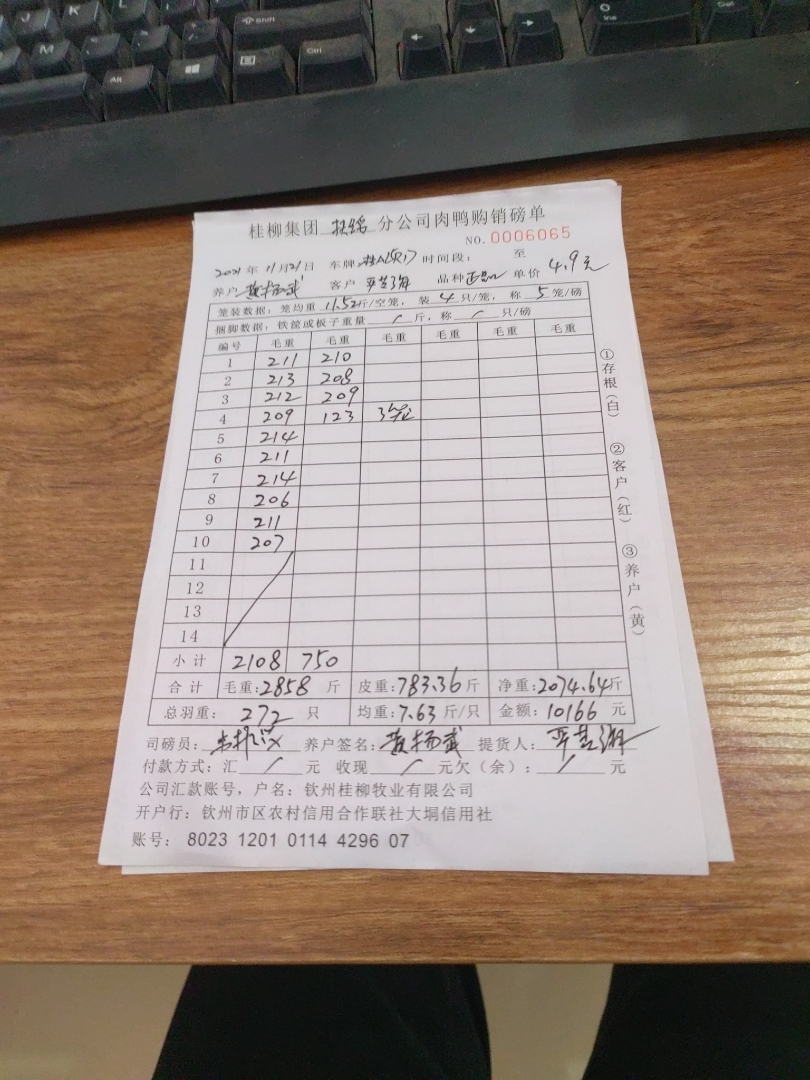 Shift
Ctrl
Alt
Ins
J K L
N M
桂柳集团 扶绥 分公司肉鸭购销磅单
NO. 0006065
2021 年 11 月 21 日 车牌: 时间段: 至
养户 黄扬武 客户 品种 正品 单价 4.9元
笼装数据: 笼均重 11.52 斤/空笼, 装 4 只/笼, 称 5 笼/磅
捆脚数据: 铁筐或板子重量 / 斤, 称 / 只/磅
编号 毛重 毛重 毛重 毛重 毛重 毛重
1 211 210
2 213 208
3 212 209
4 209 123 3笼
5 214
6 211
7 214
8 206
9 211
10 207
11
12
13
14
小计 2108 750
合计 毛重:2858 斤 皮重:783.36斤 净重:2074.64斤
总羽重: 272 只 均重:7.63 斤/只 金额: 10166 元
司磅员: 养户签名: 黄扬武 提货人:
付款方式: 汇 / 元 收现 / 元欠(余): / 元
公司汇款账号, 户名: 钦州桂柳牧业有限公司
开户行: 钦州市区农村信用合作联社大垌信用社
账号: 8023 1201 0114 4296 07
①存根(白) ②客户(红) ③养户(黄)